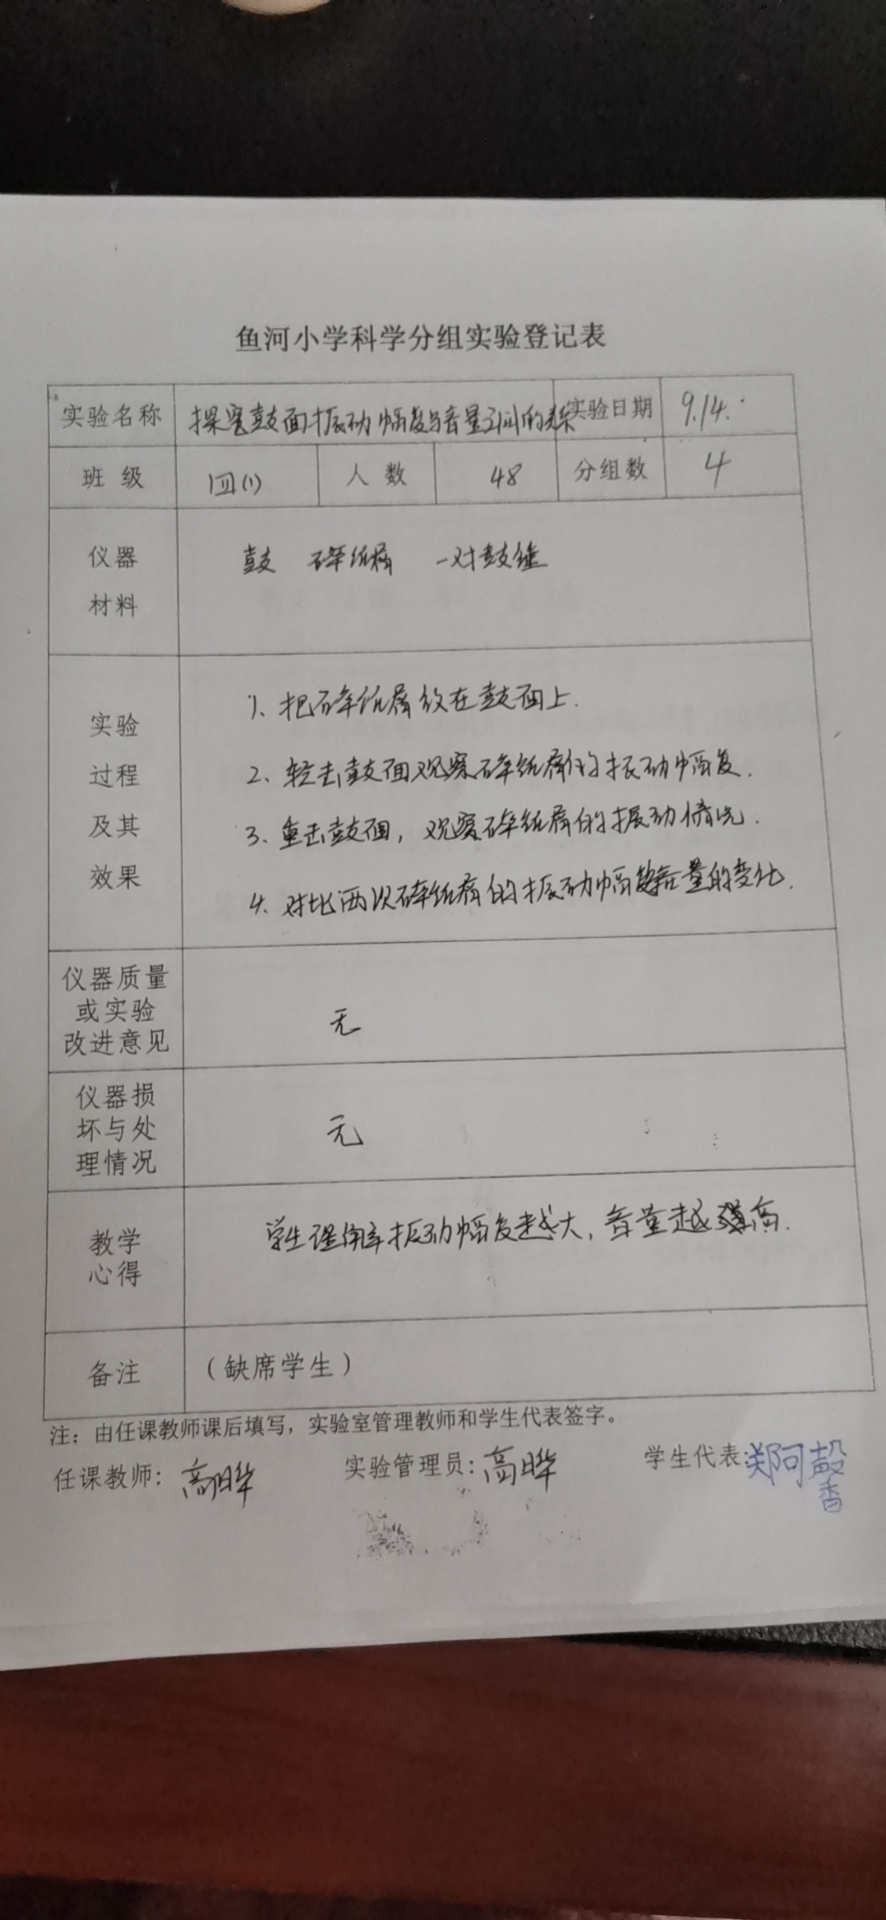 鱼河小学科学分组实验登记表
实验名称 探究鼓面振动幅度与音量之间的关系 实验日期 9.14.
班 级 四(1) 人 数 48 分组数 4
仪器
材料
鼓 碎纸屑 一对鼓锤
实验
过程
及其
效果
1、把碎纸屑放在鼓面上.
2、轻击鼓面观察碎纸屑的振动幅度.
3、重击鼓面，观察碎纸屑的振动情况.
4、对比两次碎纸屑的振动幅度音量的变化.
仪器质量
或实验
改进意见
无
仪器损
坏与处
理情况
无
教学
心得
学生理解振动幅度越大，音量越高.
备注 （缺席学生）
注：由任课教师课后填写，实验室管理教师和学生代表签字。
任课教师：高晔 实验管理员：高晔 学生代表：郑阿